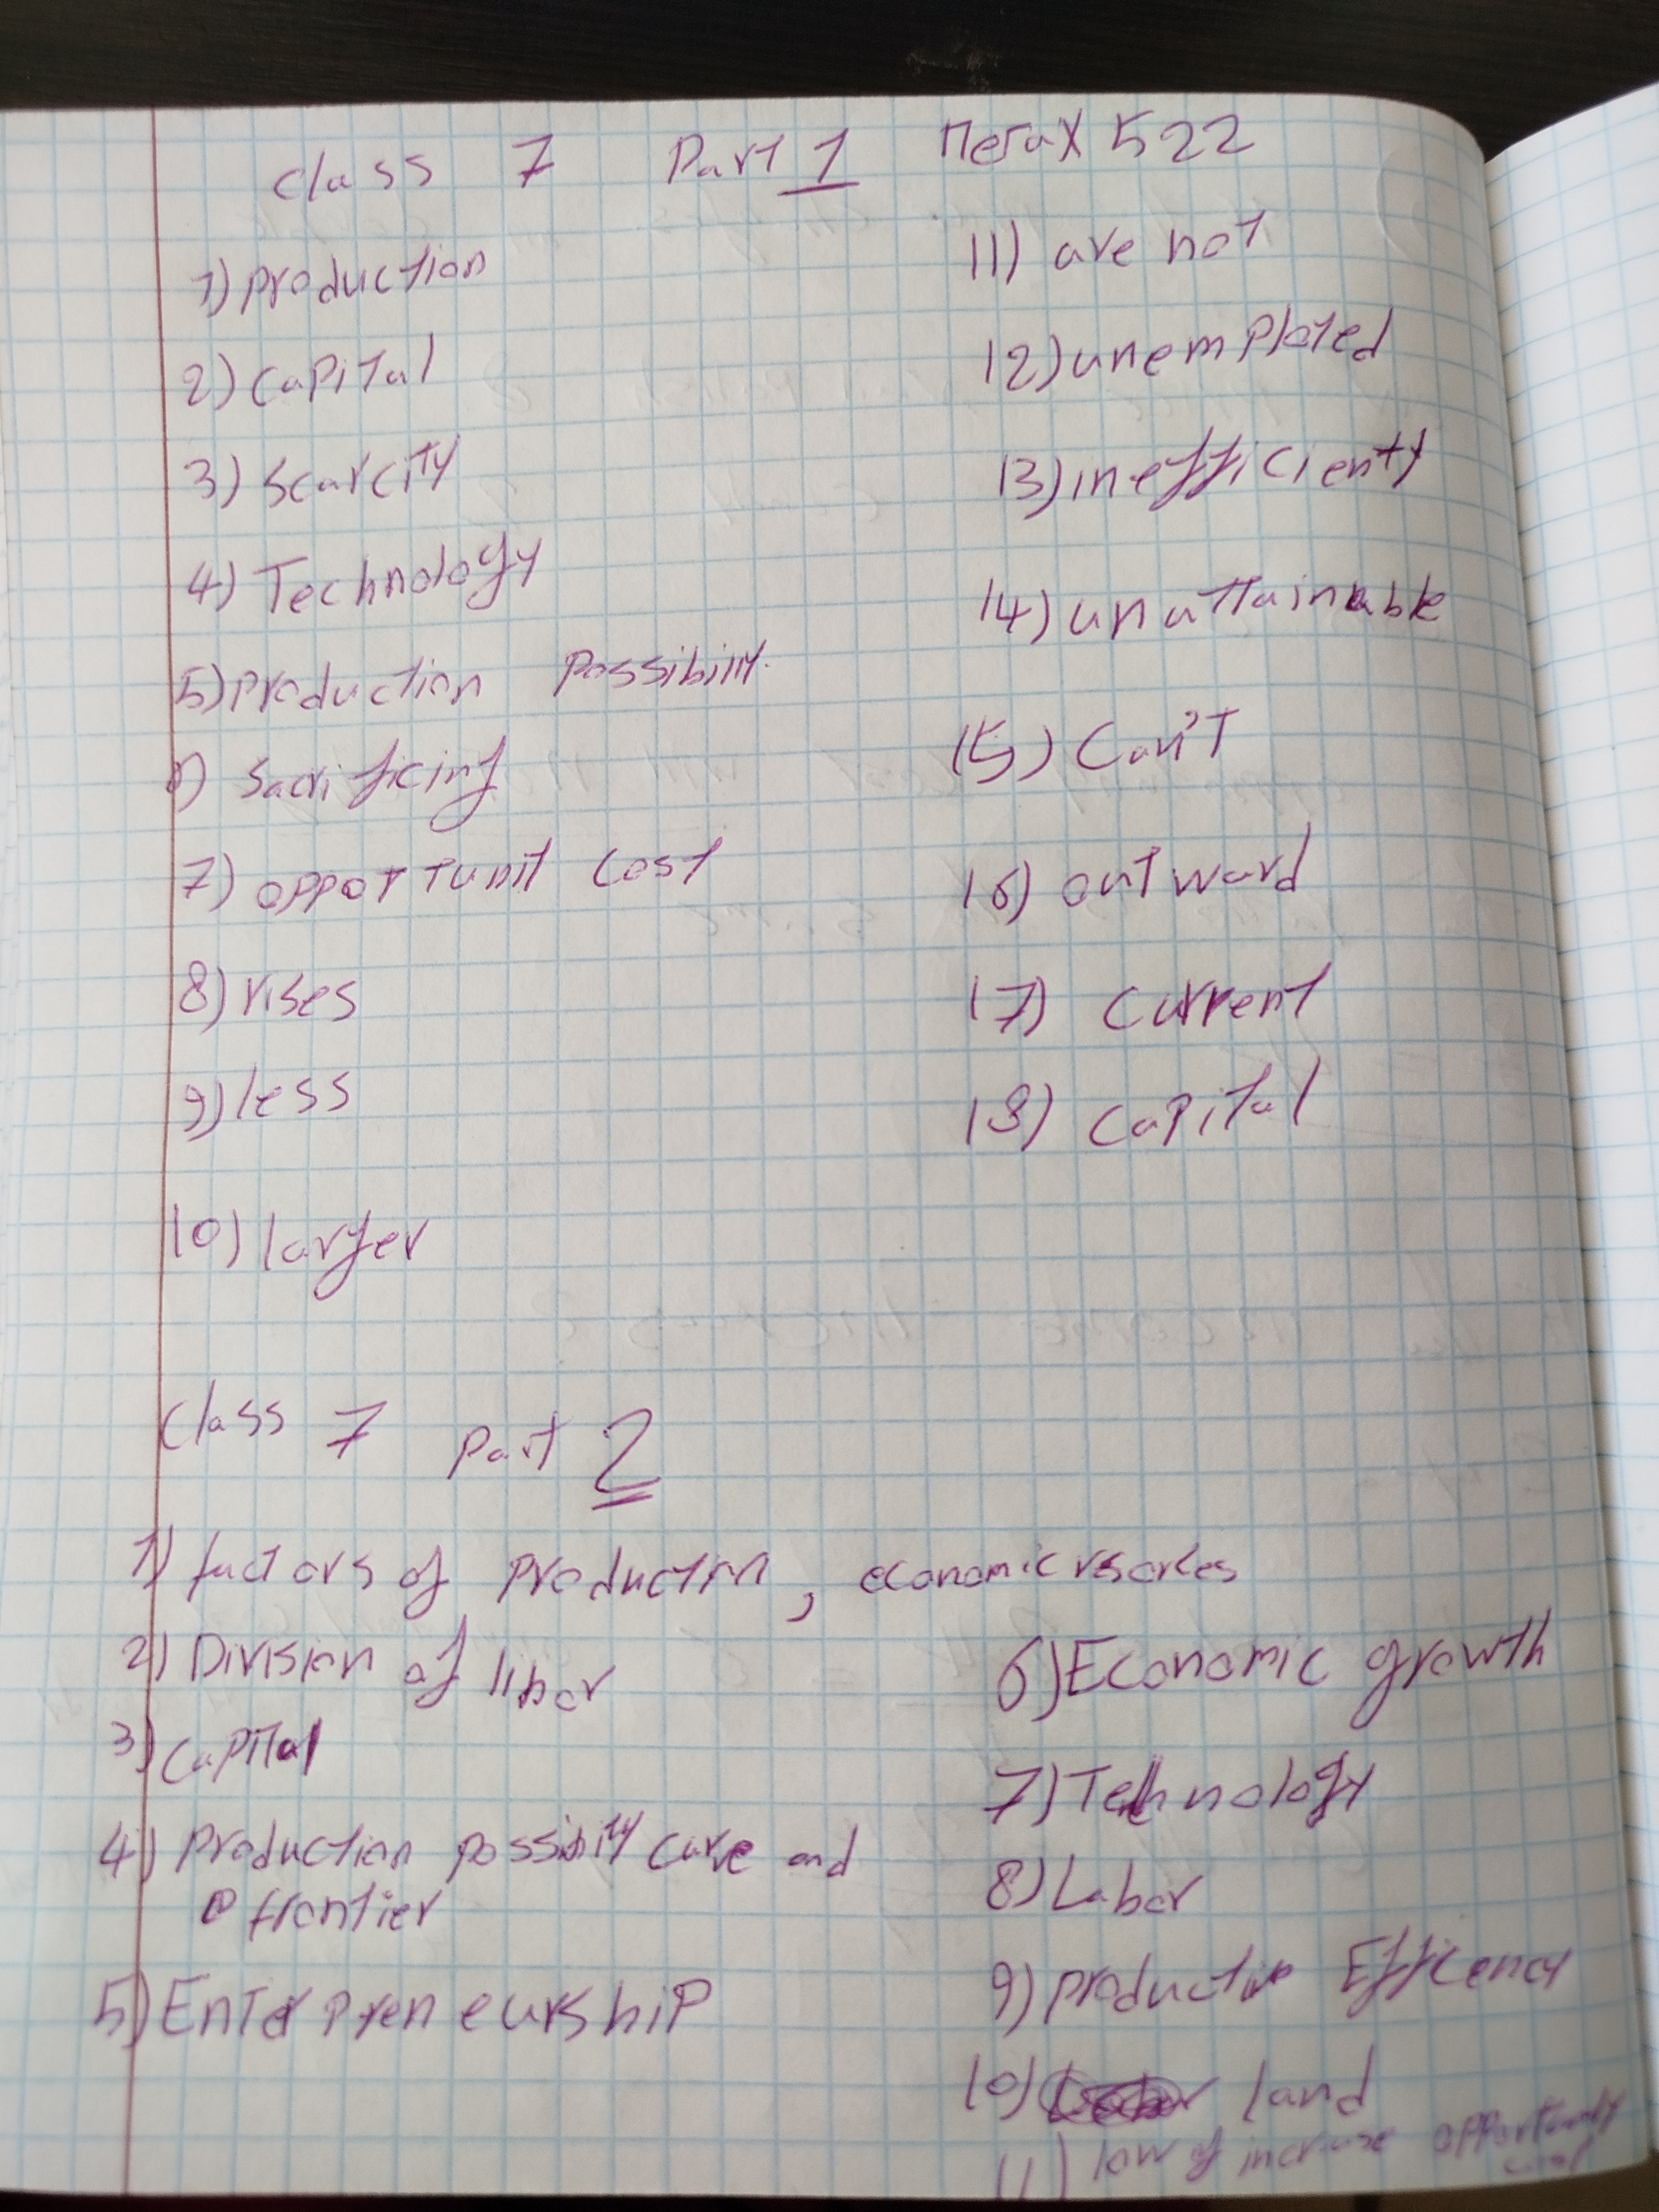 Class 7 Part 1 Пегах 522
1) production
2) capital
3) scarcity
4) Technology
5) production possibilit.
6) sacrificing
7) opportunit cost
8) rises
9) less
10) larger
11) are not
12) unemploted
13) inefficienty
14) unattainable
15) Can't
16) outward
17) current
18) capital
Class 7 part 2
1) factors of production, economic rsorces
2) Division of libor
3) capital
4) production possibility curve and
frontier
5) Enterpreneurship
6) Economic growth
7) Technology
8) Labor
9) productive Efficency
10) land
11) low of increase opportunity
cost